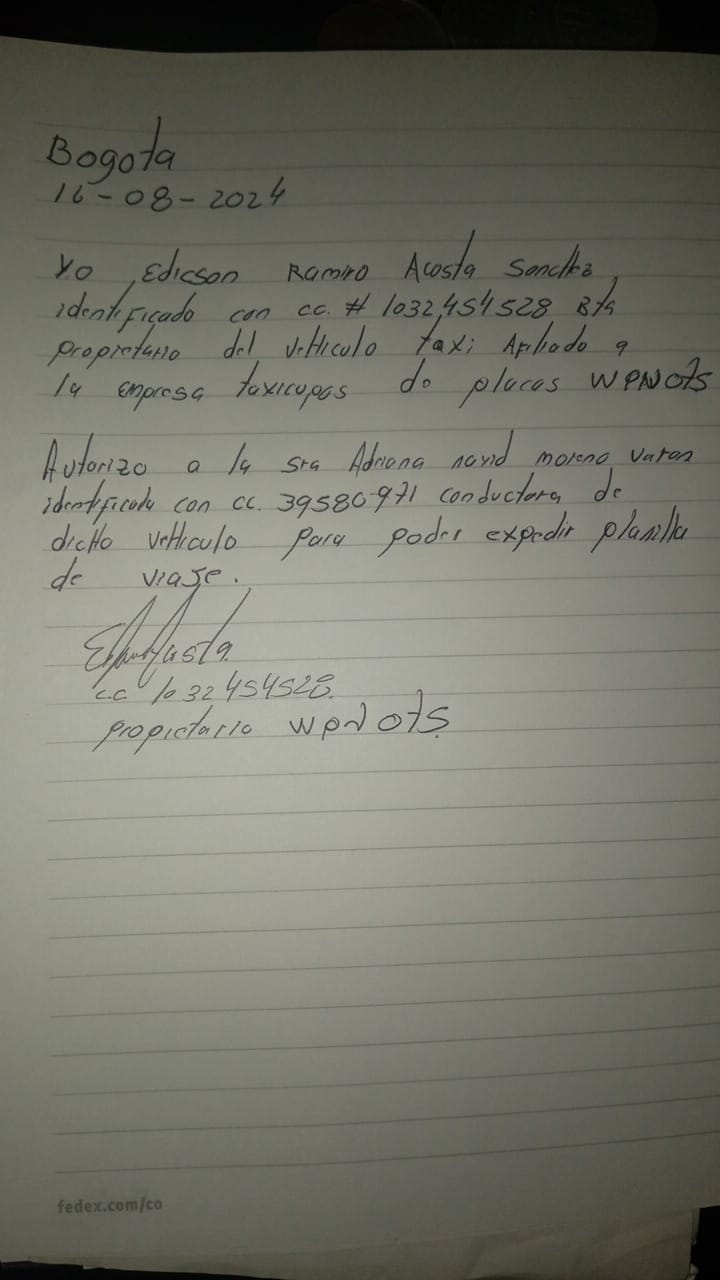 Bogota
16-08-2024
Yo, Edicson Ramiro Acosta Sanchez,
identificado con cc. # 1032,454528 Bta
propietario del vehiculo taxi Afiliado a
la empresa taxicupos de placas WPN075
Autorizo a la sra Adriana navid moreno varon
identificada con cc. 39580971 conductora de
dicho vehiculo para poder expedir planilla
de viaje.
c.c 1032454528.
propietario WPN075.
fedex.com/co